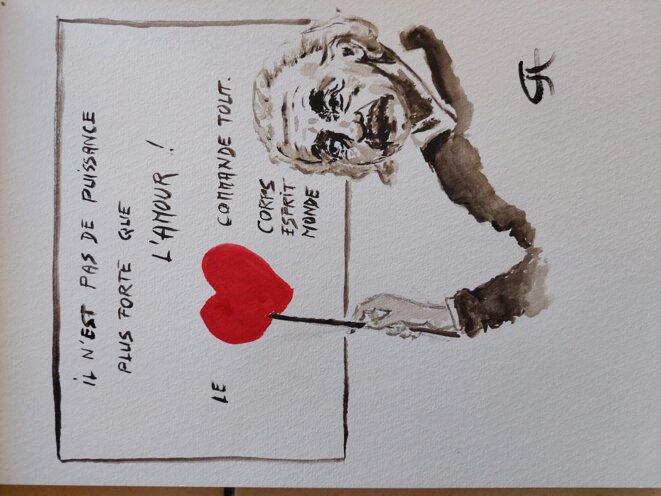 IL N'EST PAS DE PUISSANCE
PLUS FORTE QUE
L'AMOUR !
LE COMMANDE TOUT.
CORPS
ESPRIT
MONDE